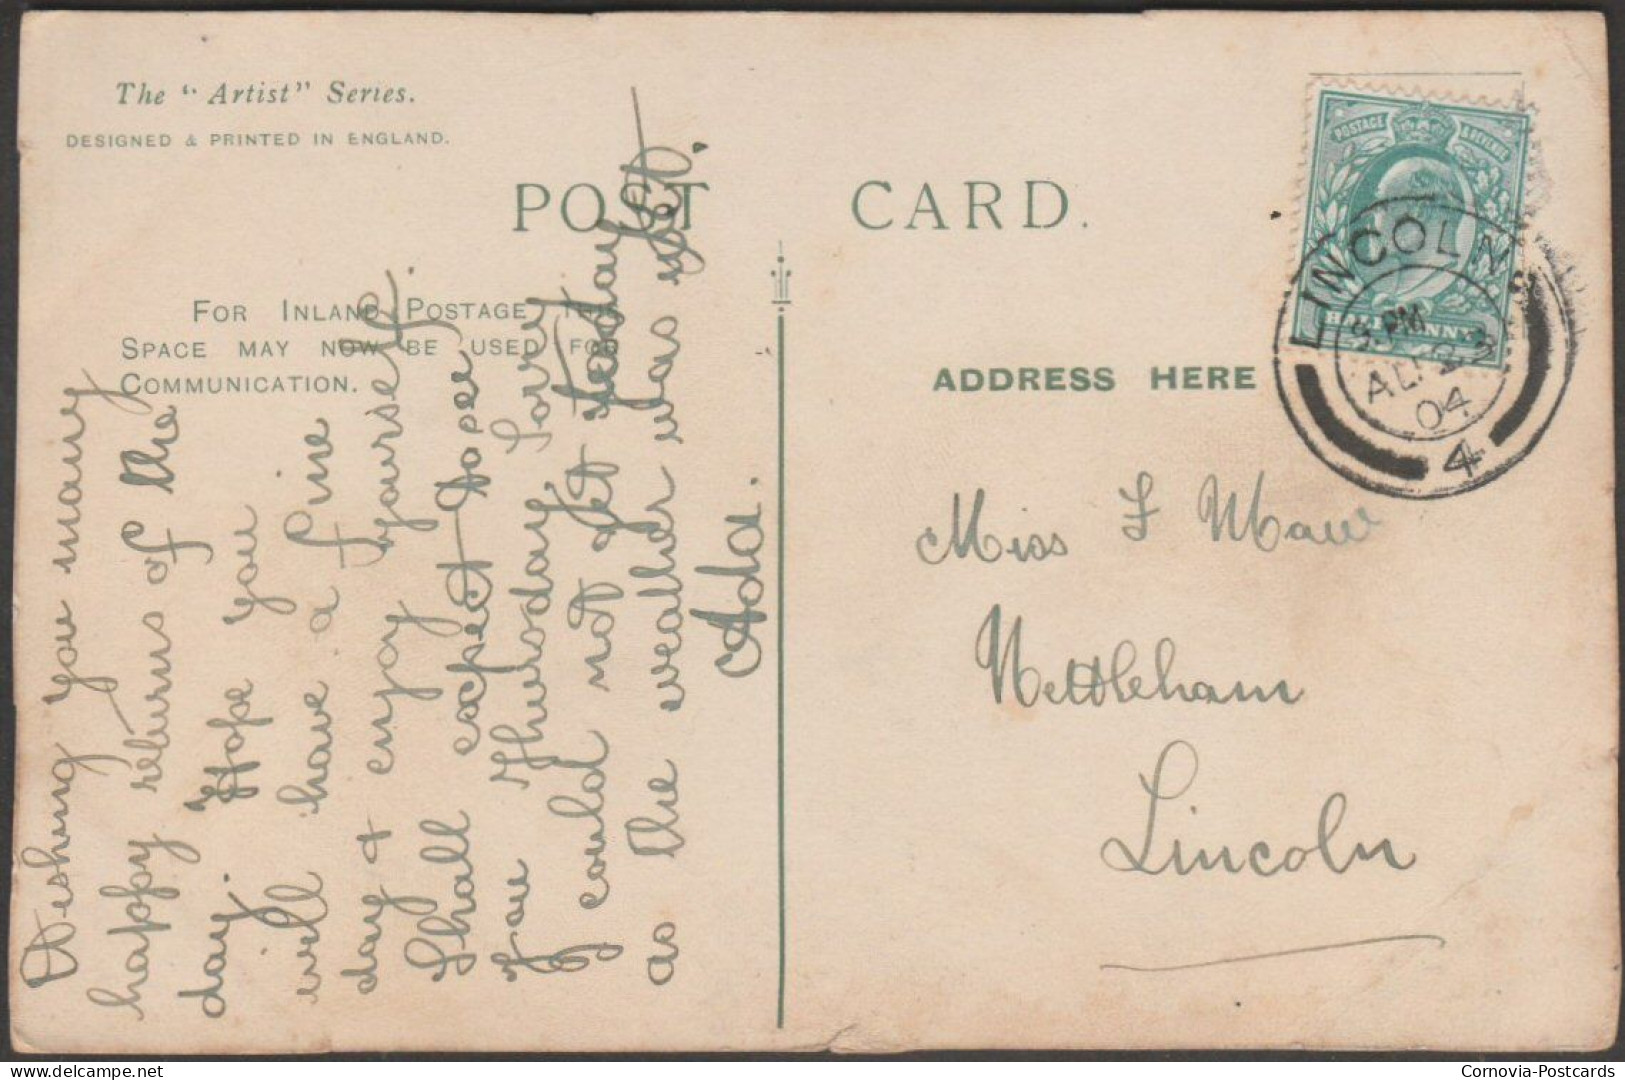 The "Artist" Series.
DESIGNED & PRINTED IN ENGLAND.
POST CARD.
FOR INLAND POSTAGE THIS
SPACE MAY NOW BE USED FOR
COMMUNICATION.
ADDRESS HERE
POSTAGE & REVENUE
HALFPENNY
LINCOLN
PM
04
4
Wishing you many
happy returns of the
day. Hope you
will have a fine
day & enjoy yourself.
Shall expect to see
you Thursday. Sorry
I could not get today
as the weather was wet.
Ada.
Miss F Maw
Nettleham
Lincoln
Cornovia-Postcards